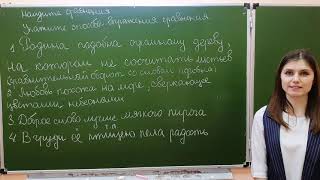 Найдите сравнения
Укажите способы выражения сравнения
1. Родина подобна огромному дереву,
на котором не сосчитать листьев
(сравнительный оборот со словом подобна)
2. Любовь похожа на море, сверкающее
цветами небесными
3. Доброе слово лучше мягкого пирога
т.п.
4. В груди её птицею пела радость